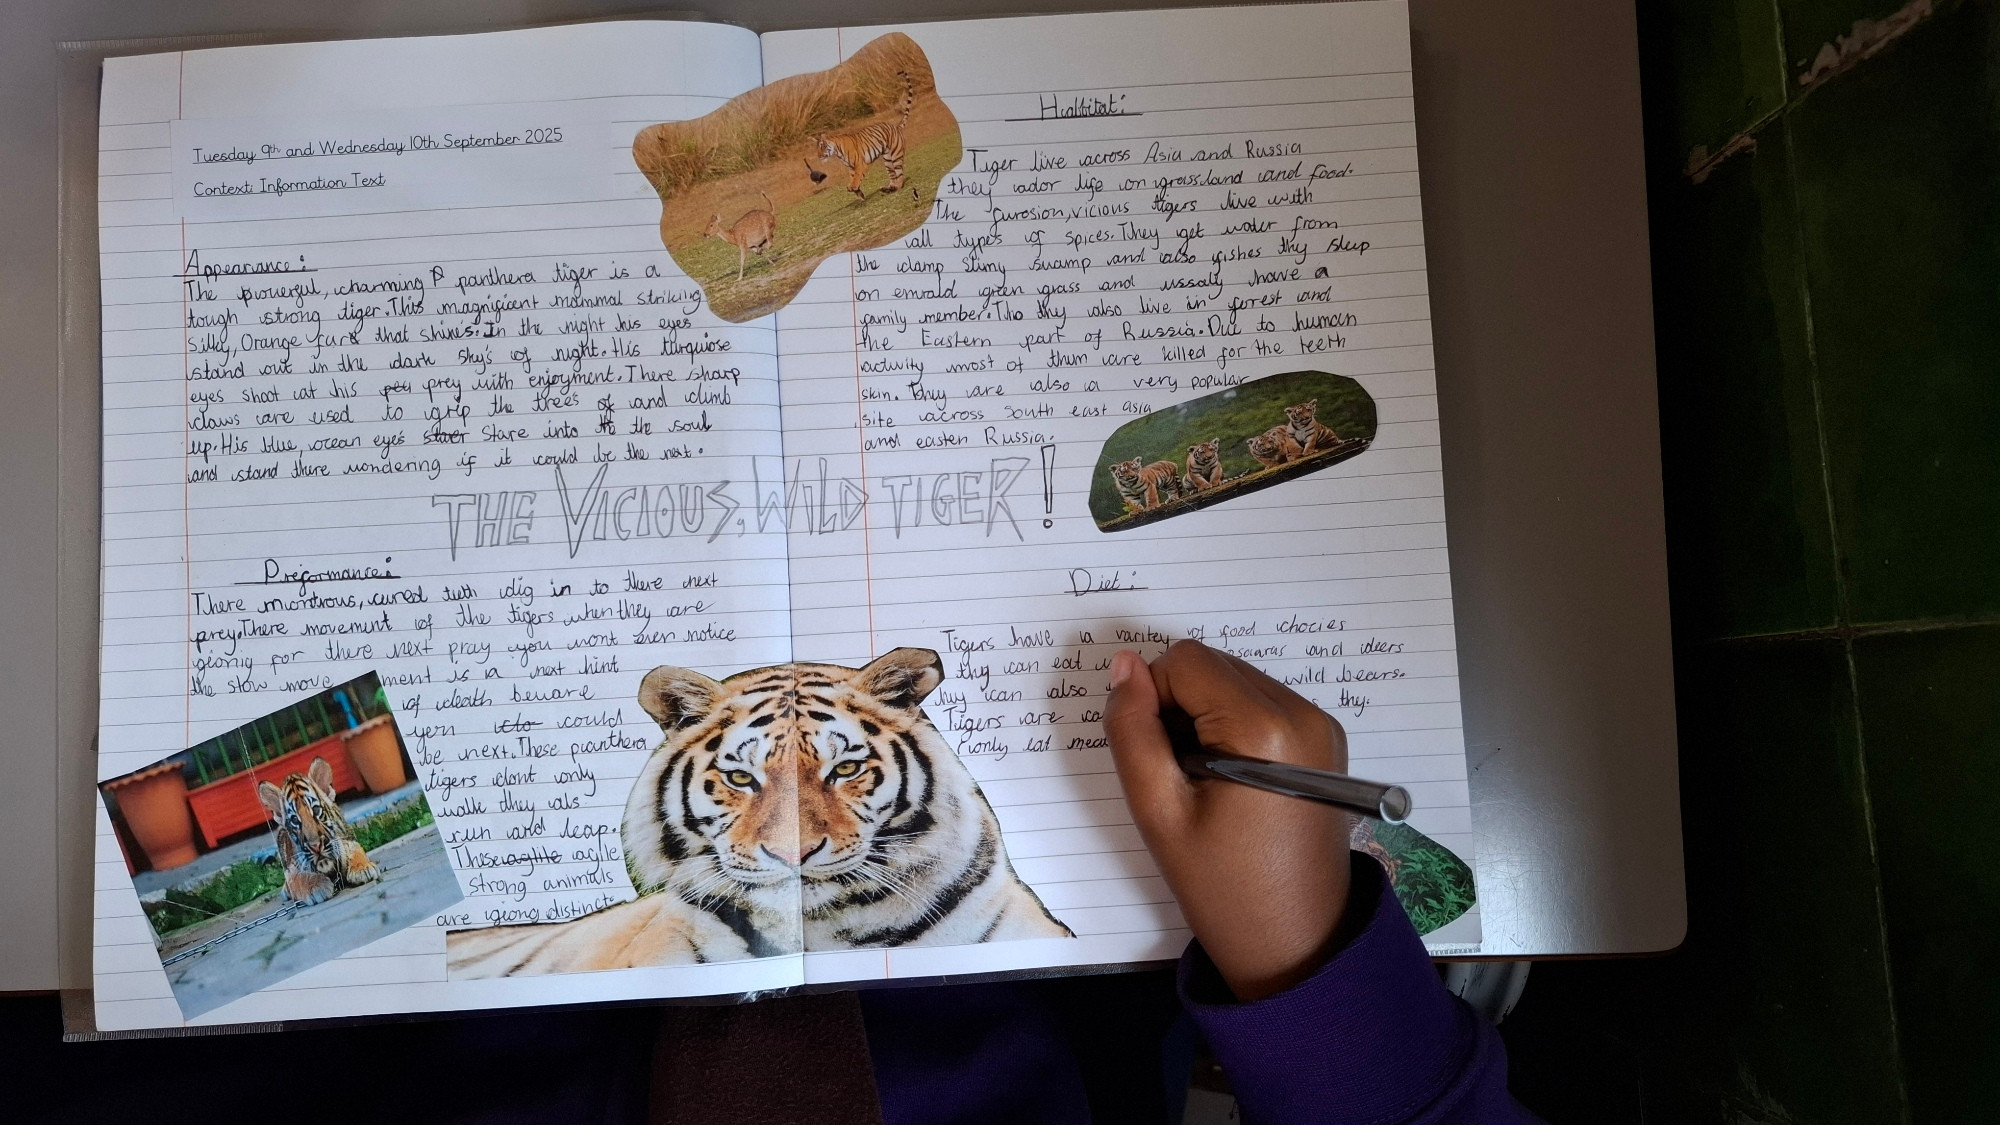 Tuesday 9th and Wednesday 10th September 2025
Context: Information Text
Appearance:
The powerful, charming P panthera tiger is a
tough strong tiger. This magnificent mammal striking
Silky, Orange fure that shines. In the night his eyes
stand out in the dark sky's of night. His turquiose
eyes shoot at his prey with enjoyment. There sharp
claws are used to grip the trees of and climb
up. His blue, ocean eyes Stare into the soul
and stand there wondering if it could be the next.
THE VICIOUS, WILD TIGER!
Preformance:
There montrous, cured teeth dig in to there next
prey. There movement of the tigers when they are
gionig for there next pray you wont even notice
the slow move ment is a next hint
of death beware
yern could
be next. These pianthera
tigers dont only
walk they als
run and leap.
These aglite agile
strong animals
are giong distinct.
Habbitat:
Tiger live across Asia and Russia
they ador life on grassland and food.
The furosion, vicious tigers live with
all types of spices. They get water from
the damp Slimy swamp and also fishes thy sleep
on emrald green grass and ussaly have a
family member. Tho thy also live in forest and
the Eastern part of Russia. Due to human
activity most of thum are killed for the teeth
skin. They are also a very popular
site across south east asia
and easten Russia.
Diet:
Tigers have a varitey of food chocies
thy can eat and deers
thy can also wild bears.
Tigers are thy.
only eat